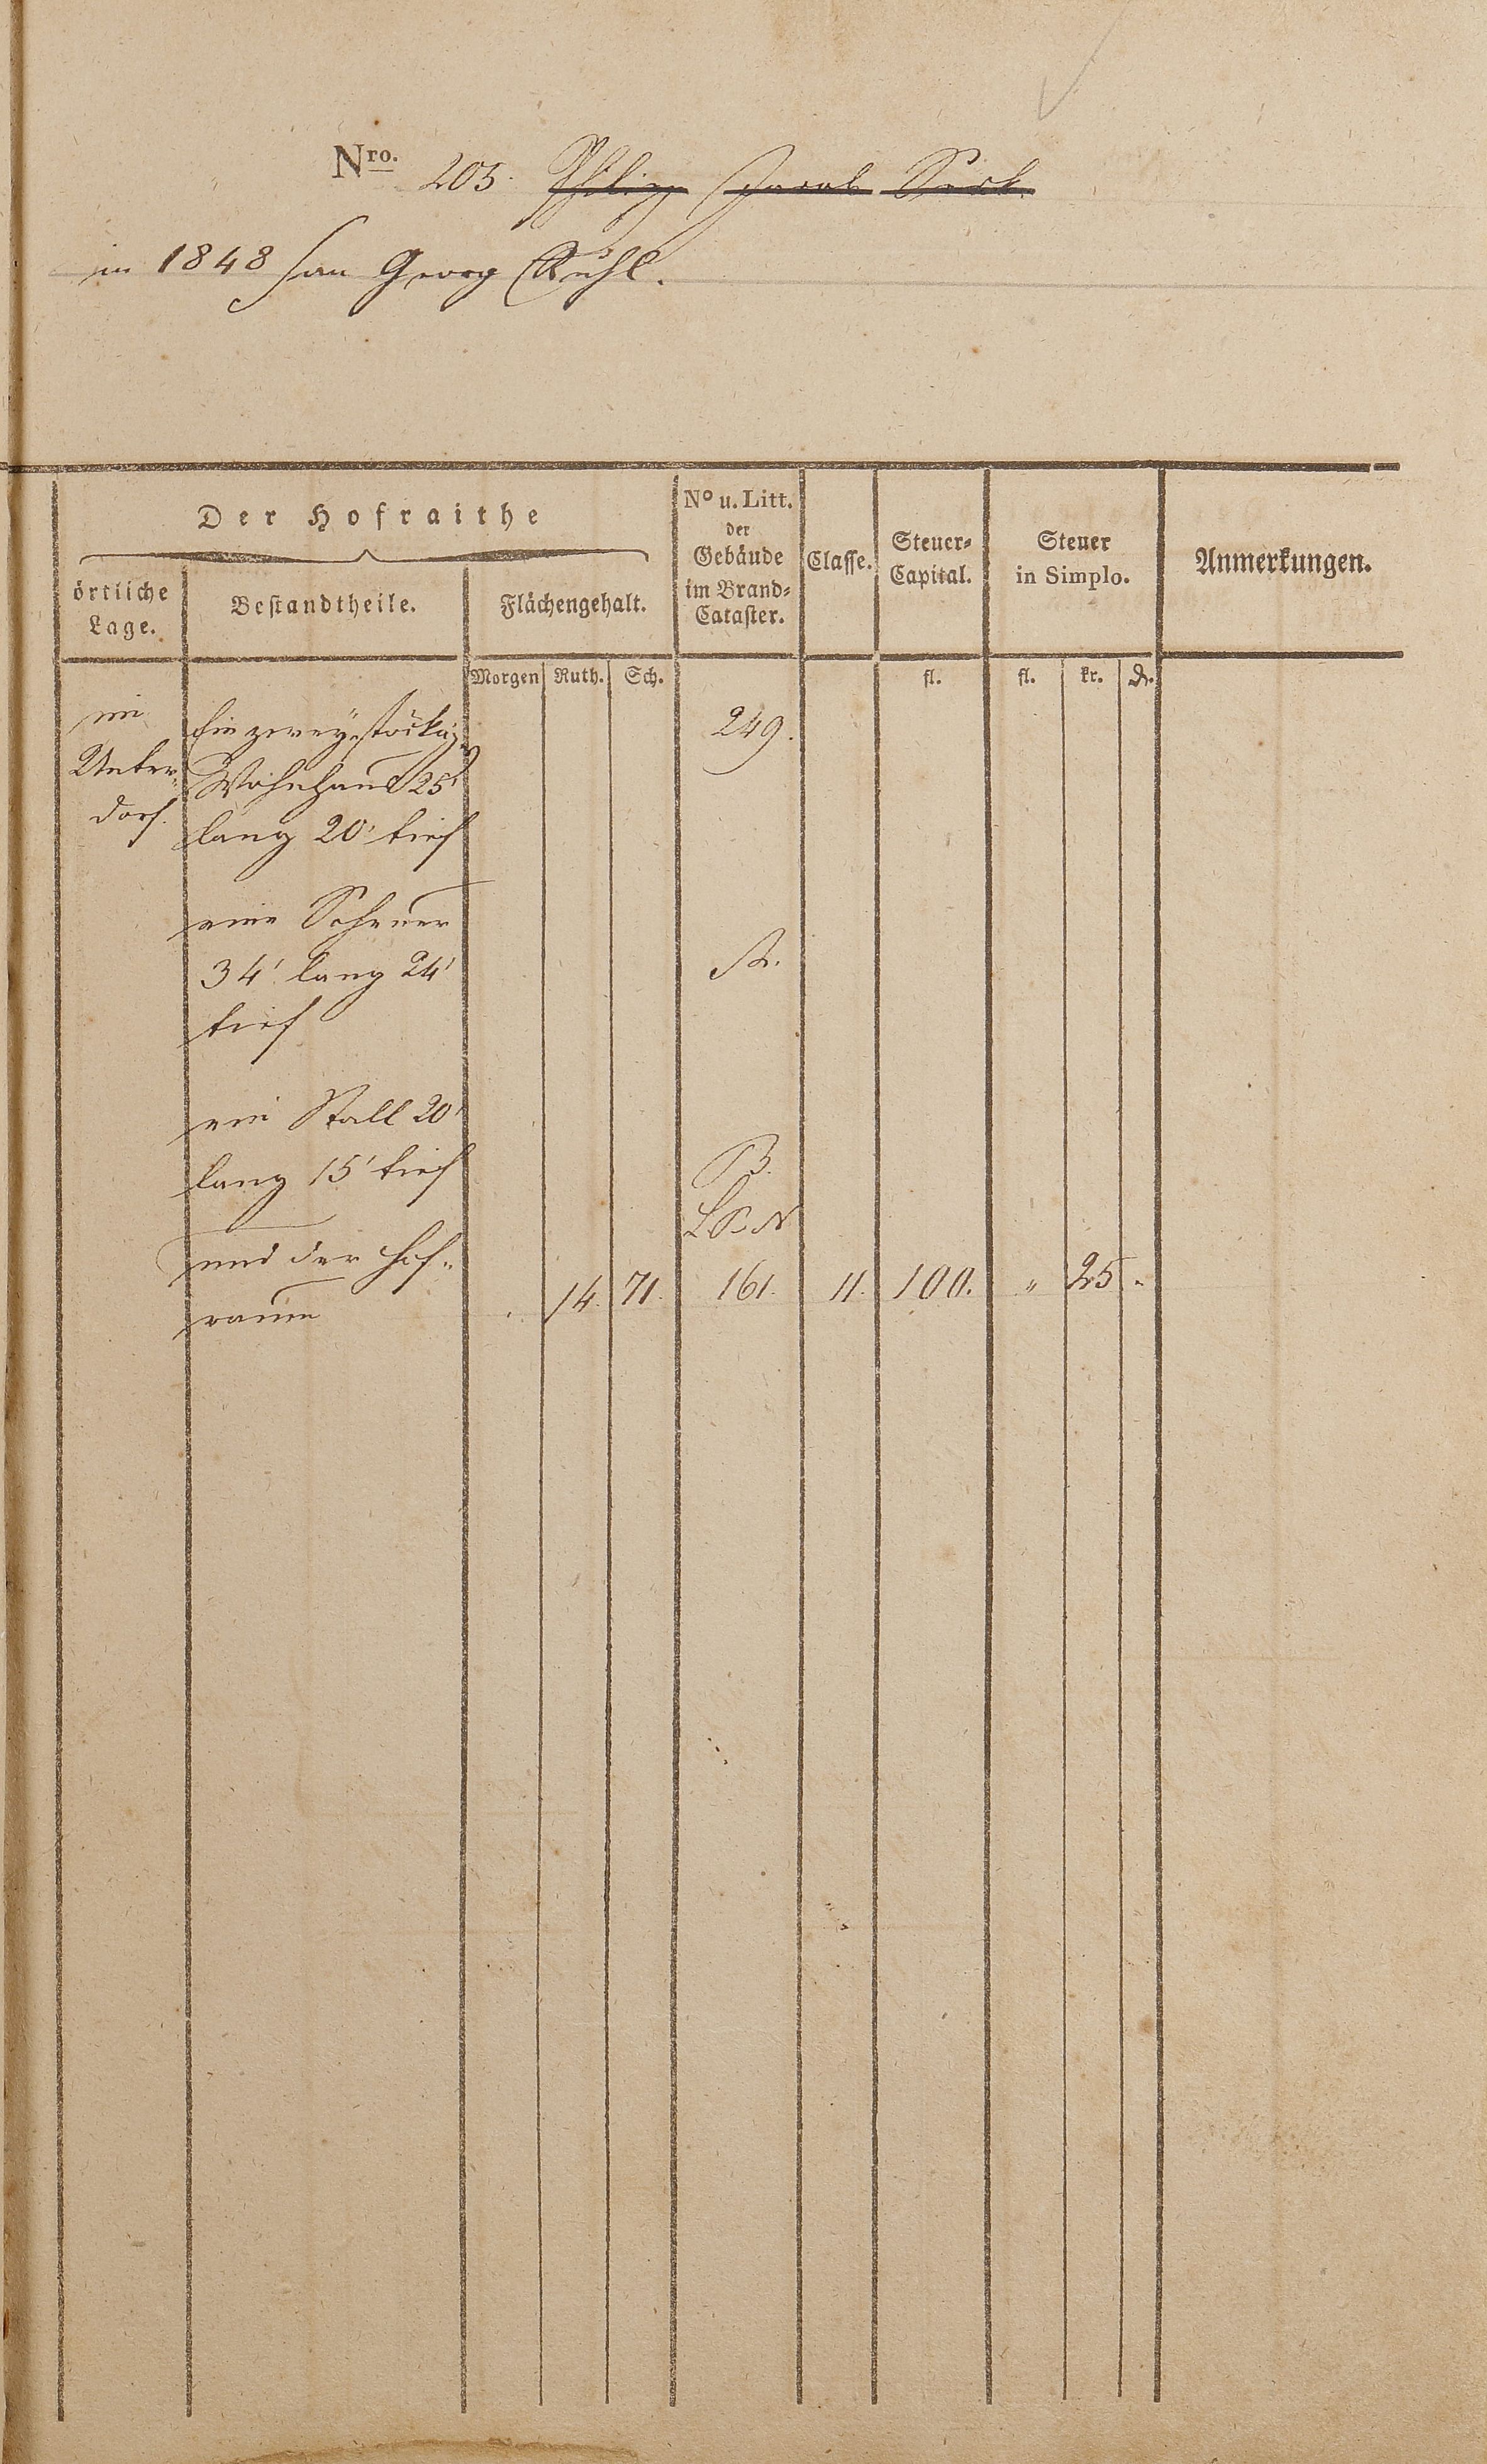 Nro. 205. Philipp Jacob
im 1848 an Georg Rühl.
Der Hofraithe
örtliche Lage.
Bestandtheile.
Flächengehalt.
No u. Litt. der Gebäude im Brand-Cataster.
Classe.
Steuer-Capital.
Steuer in Simplo.
Anmerkungen.
Morgen Ruth. Sch. fl. fl. kr. d.
im Ein zweystöckig 249.
Unter- Wohnhaus 25'
dorf. lang 20' tief
eine Scheuer
34' lang 24' A.
tief
ein Stall 20'
lang 15' tief B.
und der Hof-
raum 14. 71. 161. 11. 100. " 25 "